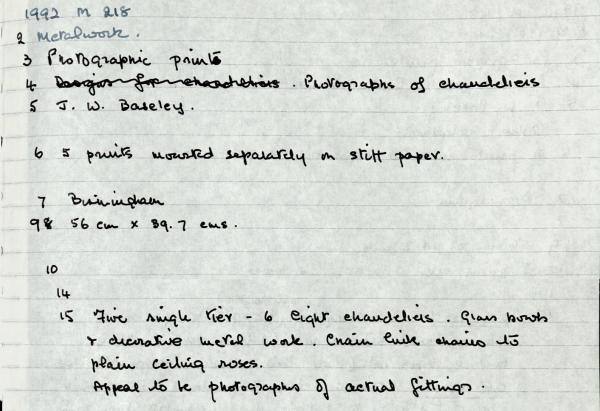 1992 M 218
2 Metalwork.
3 Photographic prints
4 Designs for chandeliers. Photographs of chandeliers
5 J. W. Baseley.
6 5 prints mounted separately on stiff paper.
7 Birmingham
98 56 cm x 39.7 cms.
10
14
15 Five single tier - 6 light chandeliers. Glass bowls
& decorative metal work. Chain link chains to
plain ceiling roses.
Appear to be photographs of actual fittings.